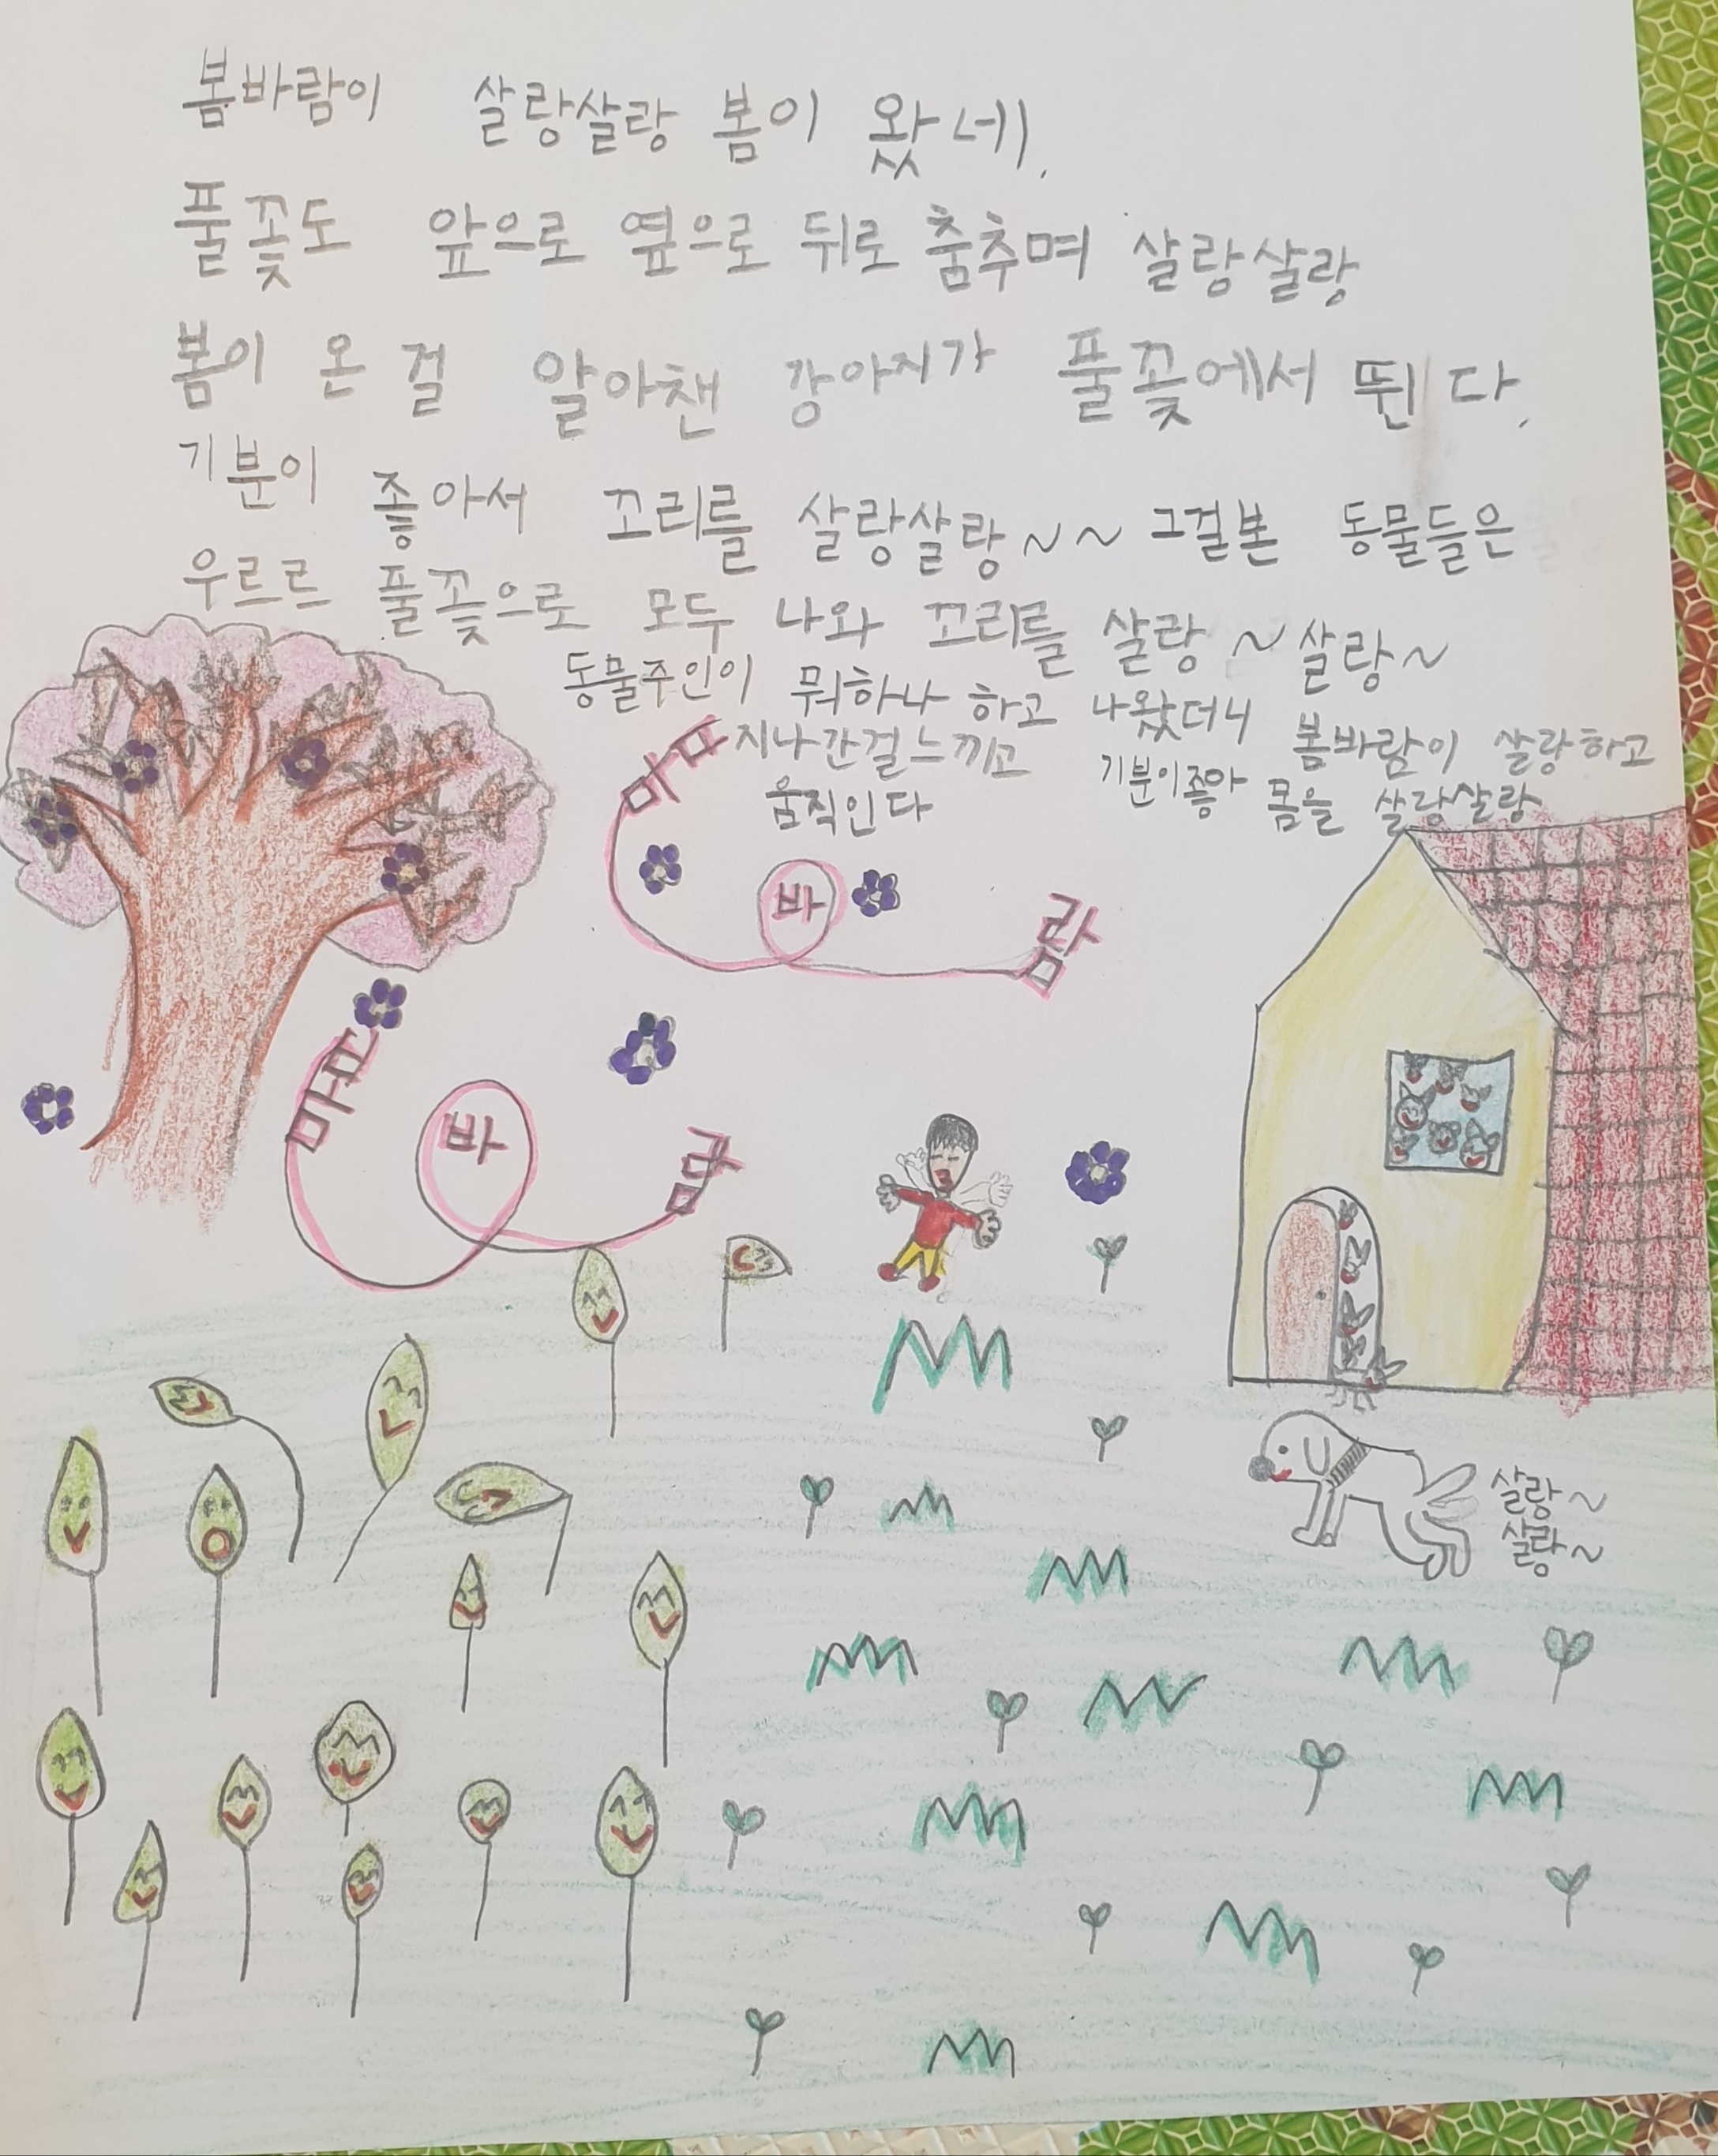 봄바람이 살랑살랑 봄이 왔네.
풀꽃도 앞으로 옆으로 뒤로 춤추며 살랑살랑
봄이 온 걸 알아챈 강아지가 풀꽃에서 뛴다.
기분이 좋아서 꼬리를 살랑살랑~~ 그걸본 동물들은
우르르 풀꽃으로 모두 나와 꼬리를 살랑~살랑~
동물주인이 뭐하나 하고 나왔더니 봄바람이 살랑하고
지나간걸느끼고 기분이좋아 몸을 살랑살랑
움직인다
봄바람
봄바람
살랑~
살랑~